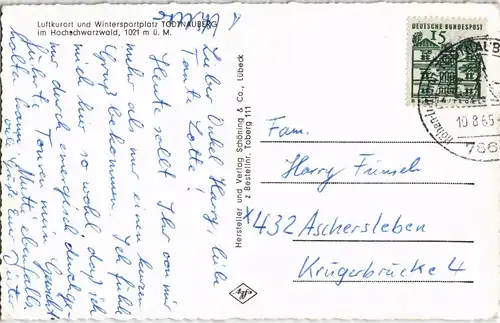 Luftkurort und Wintersportplatz TODTNAUBERG
im Hochschwarzwald, 1021 m ü. M.
Lieber Onkel Harry, liebe
Tante Lotte!
Heute sollt Ihr von mir
mehr als nur einen kurzen
Gruß bekommen. Ich fühle
mich hier so wohl, daß ich
nur durch energisch durchge-
führte Touren mein Gewicht
halten kann. Mutti ebenfalls
viele Grüße Euer Dieter
Hersteller und Verlag Schöning & Co., Lübeck
z Bestellnr. Toberg 111
DEUTSCHE BUNDESPOST
15
10.8.65
786
Fam.
Harry Fünsch
x 432 Aschersleben
Krügerbrücke 4